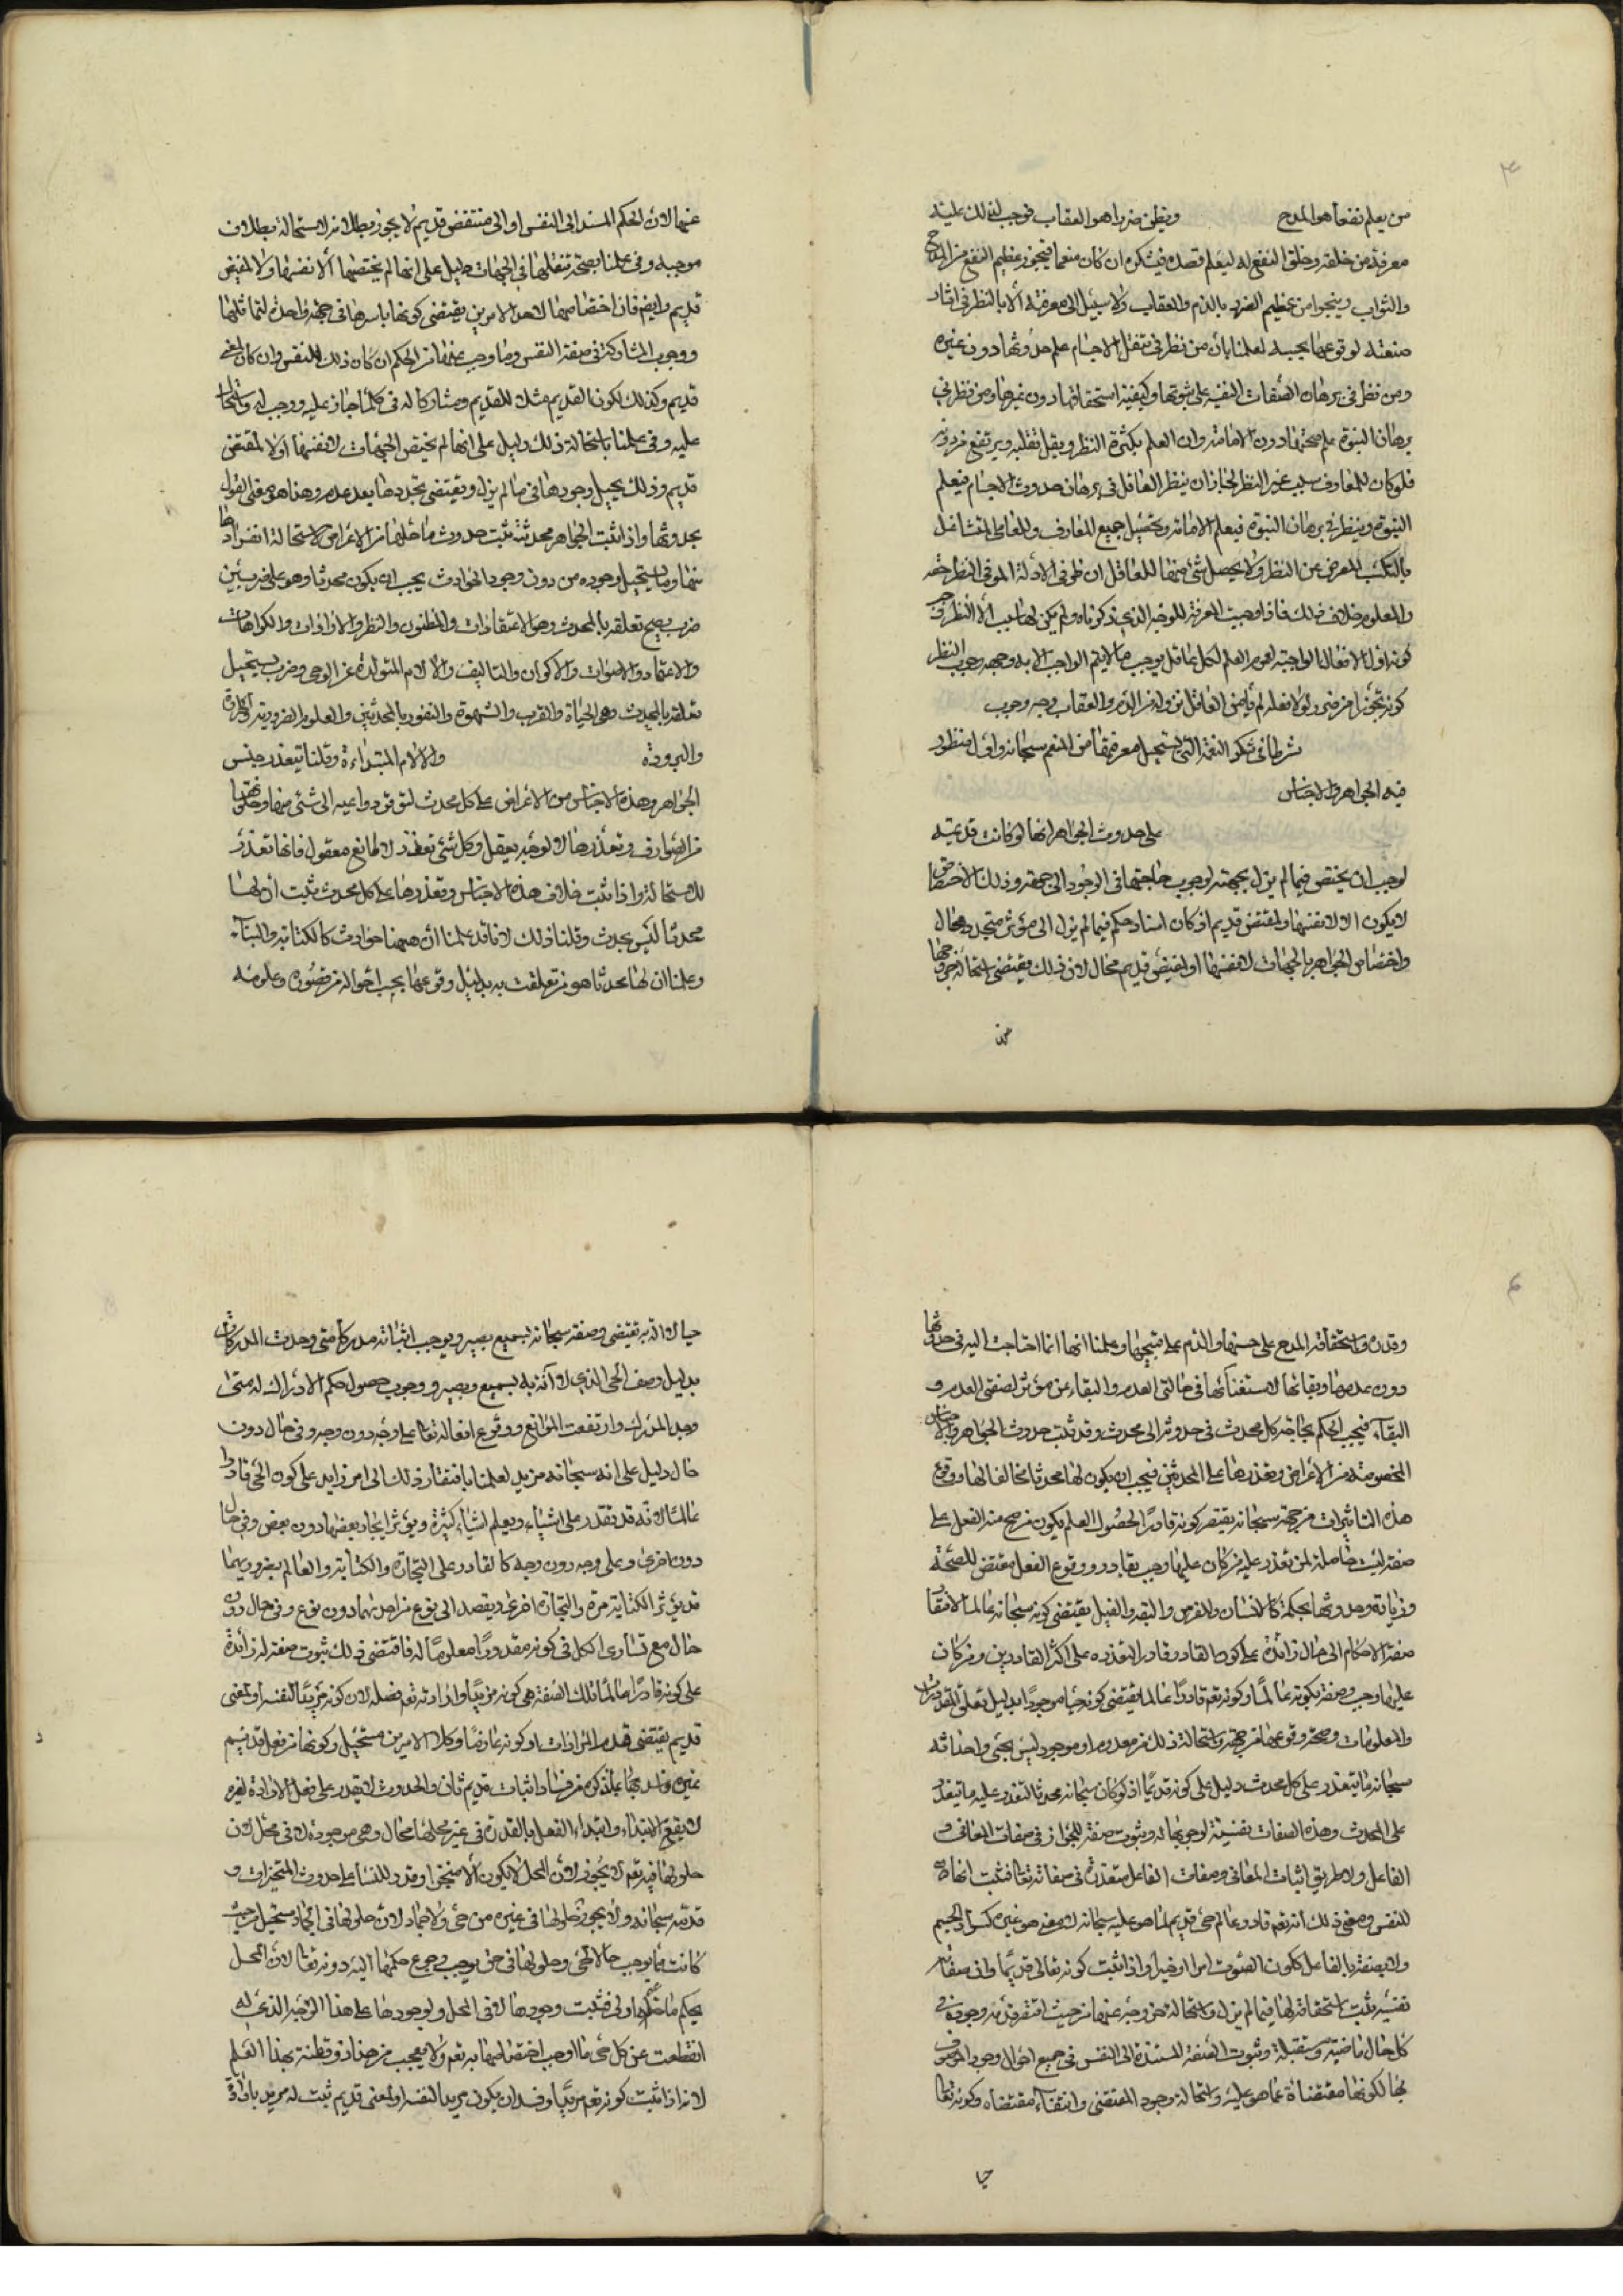 ٣
من يعلم نفعا هو المدح ويظن ضررا هو العقاب فوجب لذلك عليه
معرفة من خلقه وخلق النفع له ليعلم قصده فيشكره ان كان منعما فيحوز عظيم النفع من المدح
والثواب وينجوا من عظيم الضرر بالذم والعقاب ولا سبيل الى معرفته الا بالنظر في اثار
صنعته لوقوعها بحسبه لعلمنا بأن من نظر في تنقل الاجسام علم حدوثها دون غيره
ومن نظر في برهان الصفات النفسية علم ثبوتها وكيفية استحقاقها دون غيرها ومن نظر في
برهان النبوة علم صحتها دون الامامة وان العلم بكثرة النظر ويقل بقلته ويرتفع من دونه
فلو كان للمعارف سبب غير النظر لجاز ان ينظر العاقل في برهان حدوث الاجسام فيعلم
النبوة وينظر في برهان النبوة فيعلم الامامة وتحصيل جميع المعارف للعامي المتشاغل
بالتكسب المعرض عن النظر ولا يحصل شئ منها للعاقل الناظر في الادلة الموفي النظر حقه
والمعلوم خلاف ذلك فاذا وجبت المعرفة للوجه الذي ذكرناه ولم يكن لها سبب الا النظر وجب
كونه اول الافعال الواجبة لعموم العلم لكل عاقل بوجوب ما لا يتم الواجب الا به وجهة وجوب النظر
كونه تحرزا من ضرر لولا فعله لم يأمن العاقل نزوله من الذم والعقاب وجه وجوب
شرطا في شكر النعمة التي يستحيل معرفتها من المنعم سبحانه واول منظور
فيه الجواهر والاجناس
على حدوث الجواهر انها لو كانت قديمة
لوجب ان يختص فيما لم يزل بجهة لوجوب حاجتها في الوجود الى جهة وذلك الاختصاص
لا يكون الا لانفسها او لمقتض قديم اذ كان اسناد حكم فيما لم يزل الى مؤثر متجدد محال
واختصاص الجواهر بالجهات لانفسها او لمقتض قديم محال لان ذلك يقتضي استحالة خروجها
عن
عنها لان الحكم المسند الى النفس او الى مقتض قديم لا يجوز بطلانه لاستحالة بطلان
موجبه وفي علمنا بصحة تنقلها في الجهات دليل على انها لم يختص بها لا لانفسها ولا لمقتض
قديم وايضا فان اختصاصها لاحد الامرين يقتضي كونها باسرها في جهة واحدة لتماثلها
ووجوب المشاركة في صفة النفس وما وجب عنها من الحكم ان كان ذلك للنفس وان كان لمعنى
قديم وكذلك لكون القديم مثلا للقديم ومشاركا له في كلما جاز عليه ووجب له واستحال
عليه وفي علمنا باستحالة ذلك دليل على انها لم يختص الجهات لانفسها او لا لمقتضى
قديم وذلك يحيل وجودها في ما لم يزل ويقتضي تجددها بعد عدم وهذا هو معنى القول
بحدوثها واذا ثبت الجواهر محدثة ثبت حدوث ما حلها من الاعراض لاستحالة انفرادها
منها وما يستحيل وجوده من دون وجود الحوادث يجب ان يكون محدثا وهو على ضربين
ضرب يصح تعلقه بالمحدث وهو الاعتقادات والظنون والنظر والارادات والكراهات
والاعتماد والاصوات والاكوان والتاليف والآلام المتولدة عن الوهي وضرب يستحيل
تعلقه بالمحدث وهي الحياة والقدر والشهوة والنفور بالمحدثين والعلوم الضرورية والحرارة
والبرودة والآلام المبتداءة وقلنا يتعذر جنس
الجواهر وهذه الاجناس من الاعراض على كل محدث لتوفر دواعيه الى شئ منها وخلوصها
من الصوارف وتعذرها لا لوجه يعقل وكل شئ تعذر لا لمانع معقول فانما تعذر
للاستحالة واذا ثبت خلاف هذه الاجناس وتعذرها على كل محدث ثبت ان لها
محدثا ليس بمحدث وقلنا ذلك لانا قد علمنا أن هيهنا حوادث كالكتابة والبناء
وعلمنا ان لها محدثا هو من تعلقت به بدليل وقوعها بحسب احواله من قصوره وعلومه
٤
وقدره واستحقاقه المدح على حسنها والذم على قبيحها وعلمنا انها انما احتاجت اليه في حدوثها
دون عدمها وبقائها لاستغنائها في حالتي العدم والبقاء عن مؤثر لصفتي العدم و
البقاء فيجب الحكم بحاجة كل محدث في حدوثه الى محدث وقد ثبت حدوث الجواهر والاجناس
المخصوصة من الاعراض وتعذرها على المحدثين فيجب ان يكون لها محدثا مخالفا لها ووقوع
هذه التاثيرات من جهته سبحانه يفتقر كونه قادرا لحصول العلم بكون من صح منه الفعل على
صفة ليست حاصلة لمن تعذر عليه من كان عليها وجب بقادر ووقوع الفعل مقتض للصحة
وزيادة وحدوثها محكمة كالانسان والفرس والبقر والفيل يقتضي كونه سبحانه عالما لافتقار
صفة الاحكام الى حال زائدة على كون القادر قادرا لتعذره على اكثر القادرين ومن كان
عليها وجب وصفه بكونه عالما وكونه تعم قادرا عالما يقتضي كونه حيا موجودا بدليل تعلق المقدورات
والمعلومات وصحة وقوعها من جهته واستحالة ذلك من معدوم او موجود ليس بحي واحداثه
سبحانه ما يتعذر على كل محدث دليل على كونه قديما اذ لو كان سبحانه محدثا لتعذر عليه ما يتعذر
على المحدث وهذه الصفات نفسية لوجوبها له وثبوت صفة الجواز في صفات المعاني و
الفاعل ولا طريق اثبات المعاني وصفات الفاعل متعذرة في صفاته تعالى فثبت انها له
للنفس ومعنى ذلك انه تعم قادر عالم حي قديم لما هو عليه سبحانه لا لمعنى هو غيره كسواد الجسم
ولا لصفة بالفاعل ككون الصوت امرا او خبرا واذا ثبت كونه تعالى قديما وان صفاته
نفسية ثبت استحقاقه لها فيما لم يزل واستحالة خروجه عنها من حيث افتقر قدمه وجوده في
كل حال ماضية ومستقبلة وثبوت الصفة المستندة الى النفس في جميع احوال وجود الموصوف
بها لكونها مقتضاة عما هو عليه واستحالة وجود المقتضي وانتفاء مقتضاه وكونه تعالى
حيا
حيا لا آفة به يقتضي وصفه سبحانه بسميع بصير ويوجب اثباته مدركا متى وجدت المدركات
بدليل وصف الحي الذي لا آفة به بسميع وبصير ووجوب حصول حكم الادراك له متى
وجد المدرك وارتفعت الموانع ووقوع افعاله تعالى على وجه دون وجه وفي حال دون
حال دليل على انه سبحانه مريد لعلمنا بافتقار ذلك الى امر زايد على كون الحي قادرا
عالما لانه قد تقدر على اشياء ويعلم اشياء كثيرة ويؤثر ايجاد بعضها دون بعض وفي حال
دون اخرى وعلى وجه دون وجه كالقادر على التجارة والكتابة والعالم بضروبهما
قد يؤثر الكتابة مرة والتجارة اخرى ويقصد الى نوع من احديهما دون نوع وفي حال دون
حال مع تساوي الكل في كونه مقدورا معلوما له فاقتضى ذلك ثبوت صفة له زائدة
على كونه قادرا عالما تلك الصفة هي كونه مريدا وارادته تعم فعله لان كونه مريدا لنفسه او لمعنى
قديم يقتضي قدم المرادات او كونه عازما وكلا الامرين مستحيل وكونها من فعل قديم
غيره فاسد بما نذكره من فساد اثبات قديم ثان والمحدث لا يقدر على فعل الارادة لغيره
لا يقع الا مبتداء وابتداء الفعل بالقدرة في غير محلها محال وهي موجودة لا في محل لان
حلولها فيه تعم لا يجوز لان المحل لا يكون الا متحيزا وقد دللنا على حدوث المتحيزات و
قدمه سبحانه ولا يجوز حلولها في غيره من حي ولا جماد لان حلولها في الجماد مستحيل من حيث
كانت مما يوجب حالا لحي وحلولها في حي يوجب رجوع حكمها اليه دونه تعالى لان المحل
بحكم ما حله اولى فثبت وجودها لا في المحل ولوجودها على هذا الوجه الذي له
انقطعت عن كل حي ما اوجب اختصاصها به تعم ولا يعجب من هذا ذو فطنة بهذا العلم
لانه اذا ثبت كونه تعم مريدا وفسد ان يكون مريدا لنفسه او لمعنى قديم ثبت له مريد بارادة